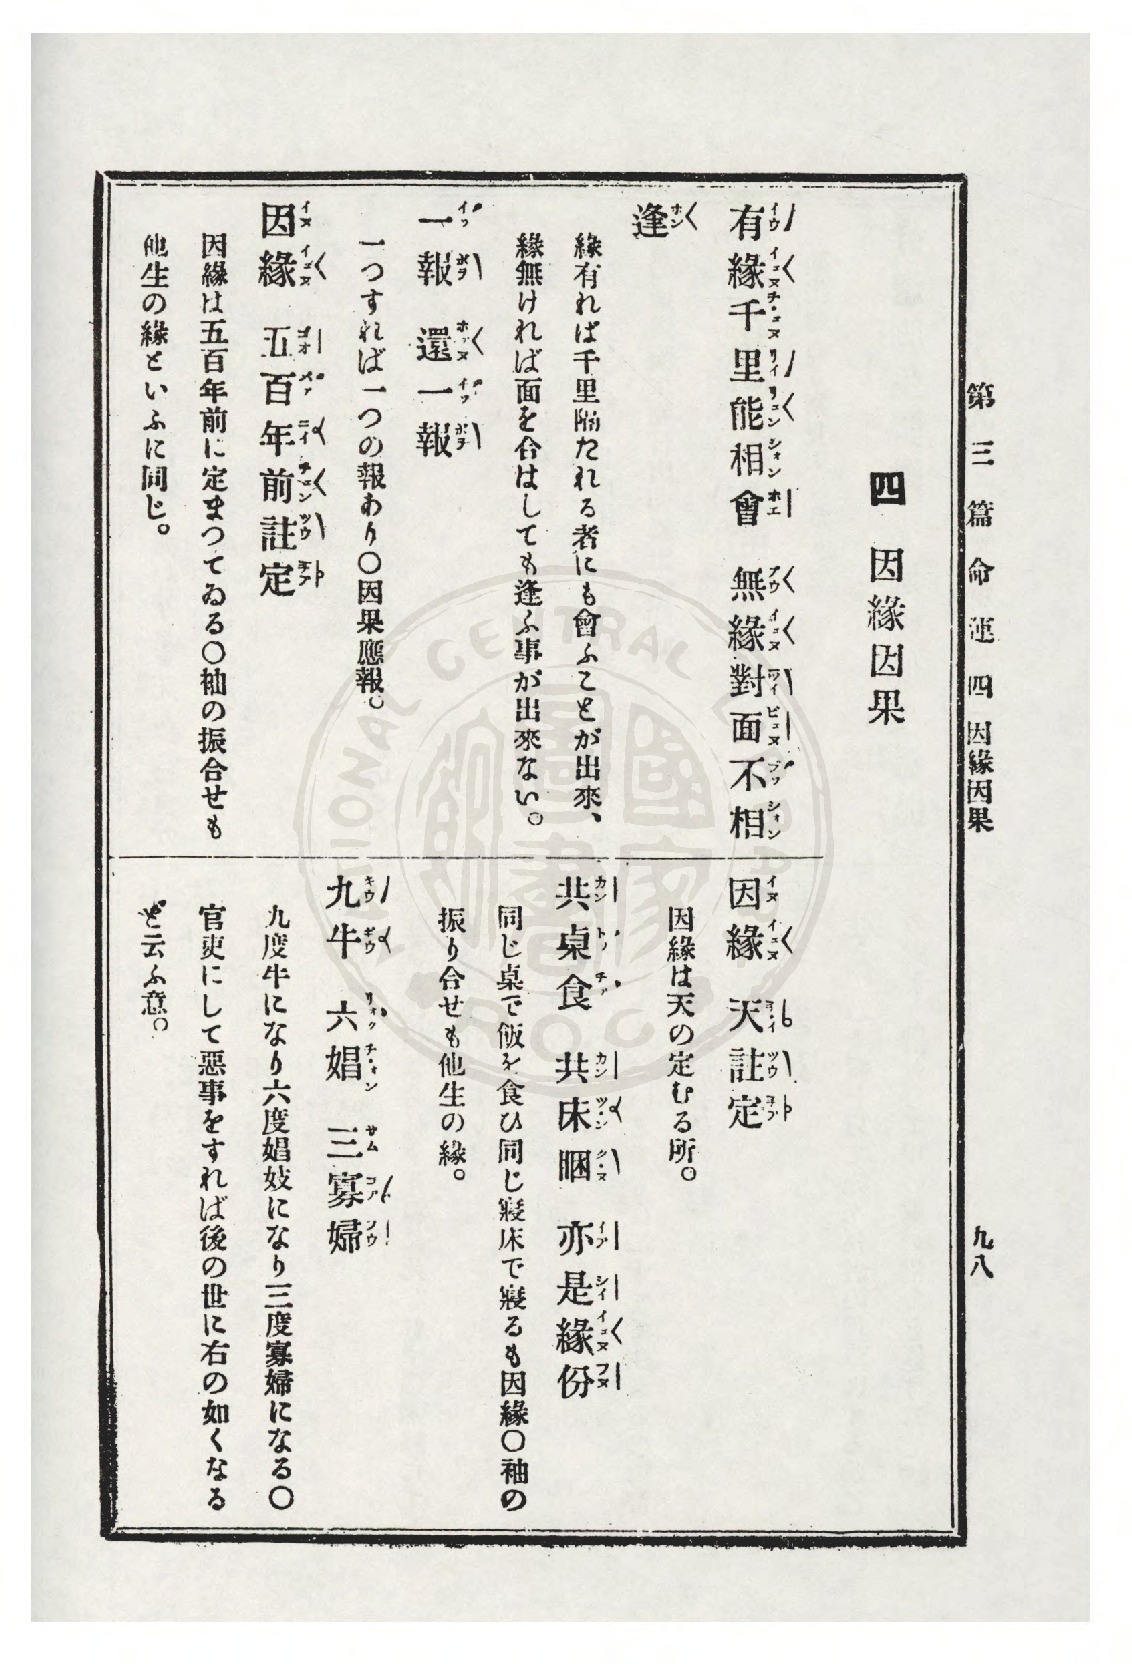 第三篇 命運 四 因緣因果
九八
四 因緣因果
有緣千里能相會 無緣對面不相
逢
緣有れば千里隔たれる者にも會ふことが出來、
緣無ければ面を合はしても逢ふ事が出來ない。
一報 還一報
一つすれば一つの報あり〇因果應報。
因緣 五百年前註定
因緣は五百年前に定まつてゐる〇袖の振合せも
他生の緣といふに同じ。
因緣 天註定
因緣は天の定むる所。
共桌食 共床睏 亦是緣份
同じ桌で飯を食ひ同じ寢床で寢るも因緣〇袖の
振り合せも他生の緣。
九牛 六娼 三寡婦
九度牛になり六度娼妓になり三度寡婦になる〇
官吏にして惡事をすれば後の世に右の如くなる
と云ふ意。
NATIONAL CENTRAL LIBRARY
ROC